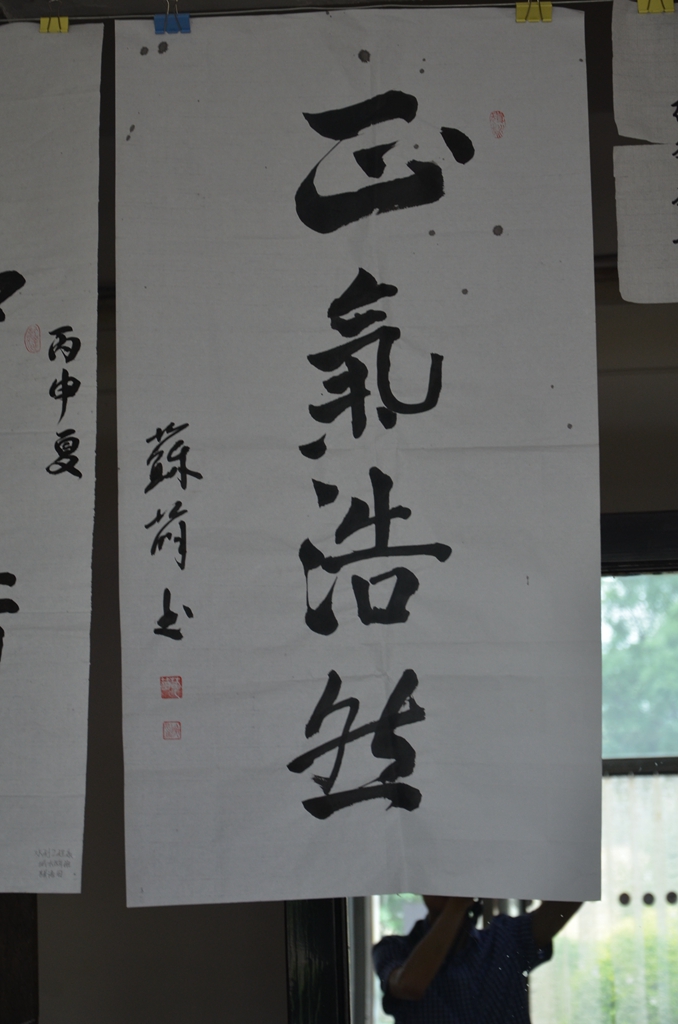 正氣浩然
蘇萌书
丙申夏